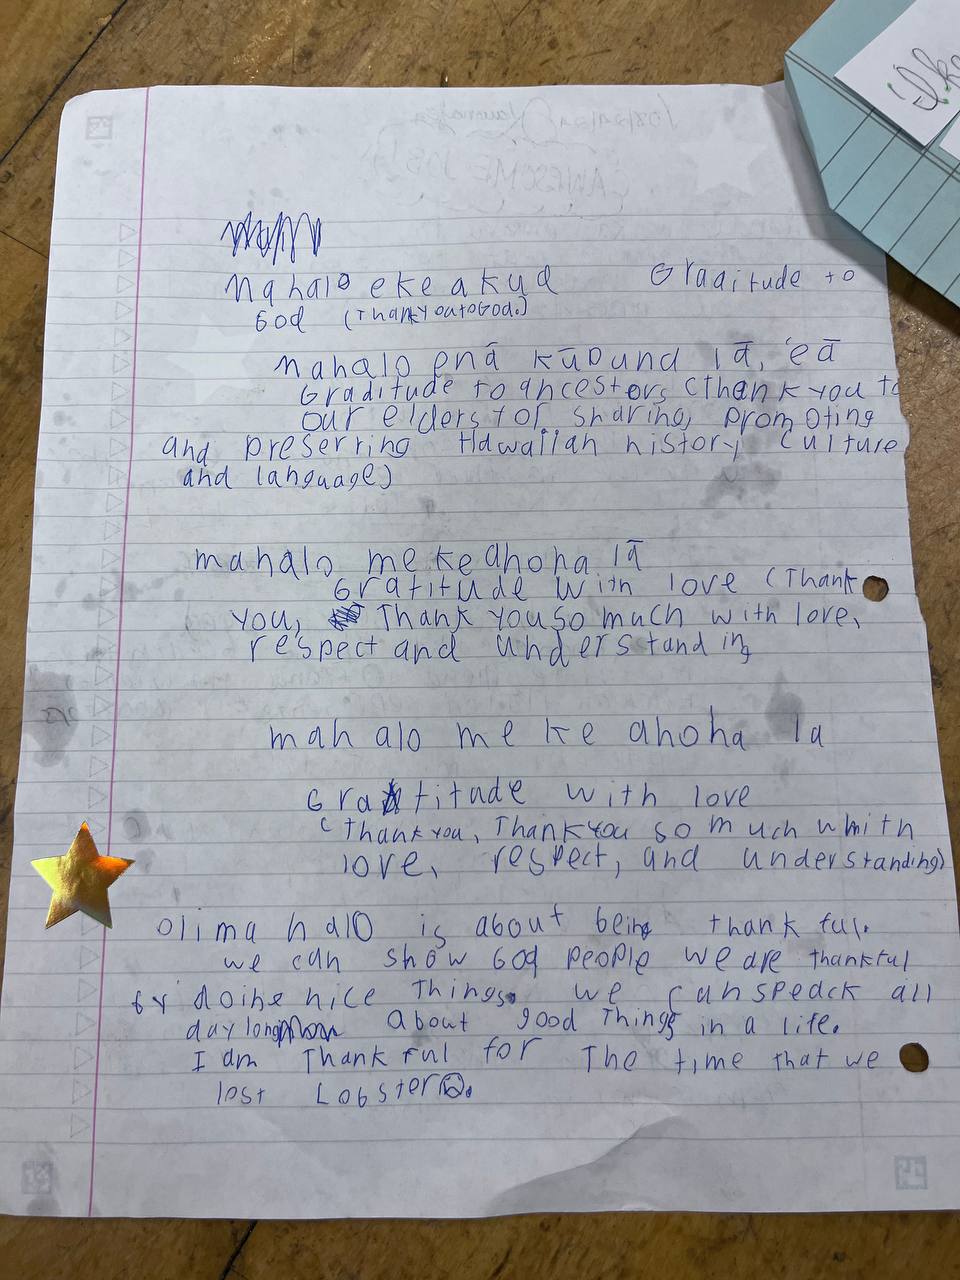 Mahalo eke akud Graditude to
God (Thankyou to God.)
Mahalo enā kūpund lā, 'eā
Graditude to ancestors (thank you to
our elders for sharing, promoting
and preserring Hawaiian history culture
and language)
mahalo me ke ahoha lā
Gratitude with love (Thank
you, Thank you so much with love,
respect and understanding
mahalo me ke ahoha la
Gratitude with love
(thank you, Thank you so much wmith
love, respect, and understanding)
olimahalo is about being thankful.
we can show God people we are thankful
by doing nice things. we can speack all
day long about good things in a life.
I am Thankful for The time that we
lost Lobster☹.
AWESOME JOB!